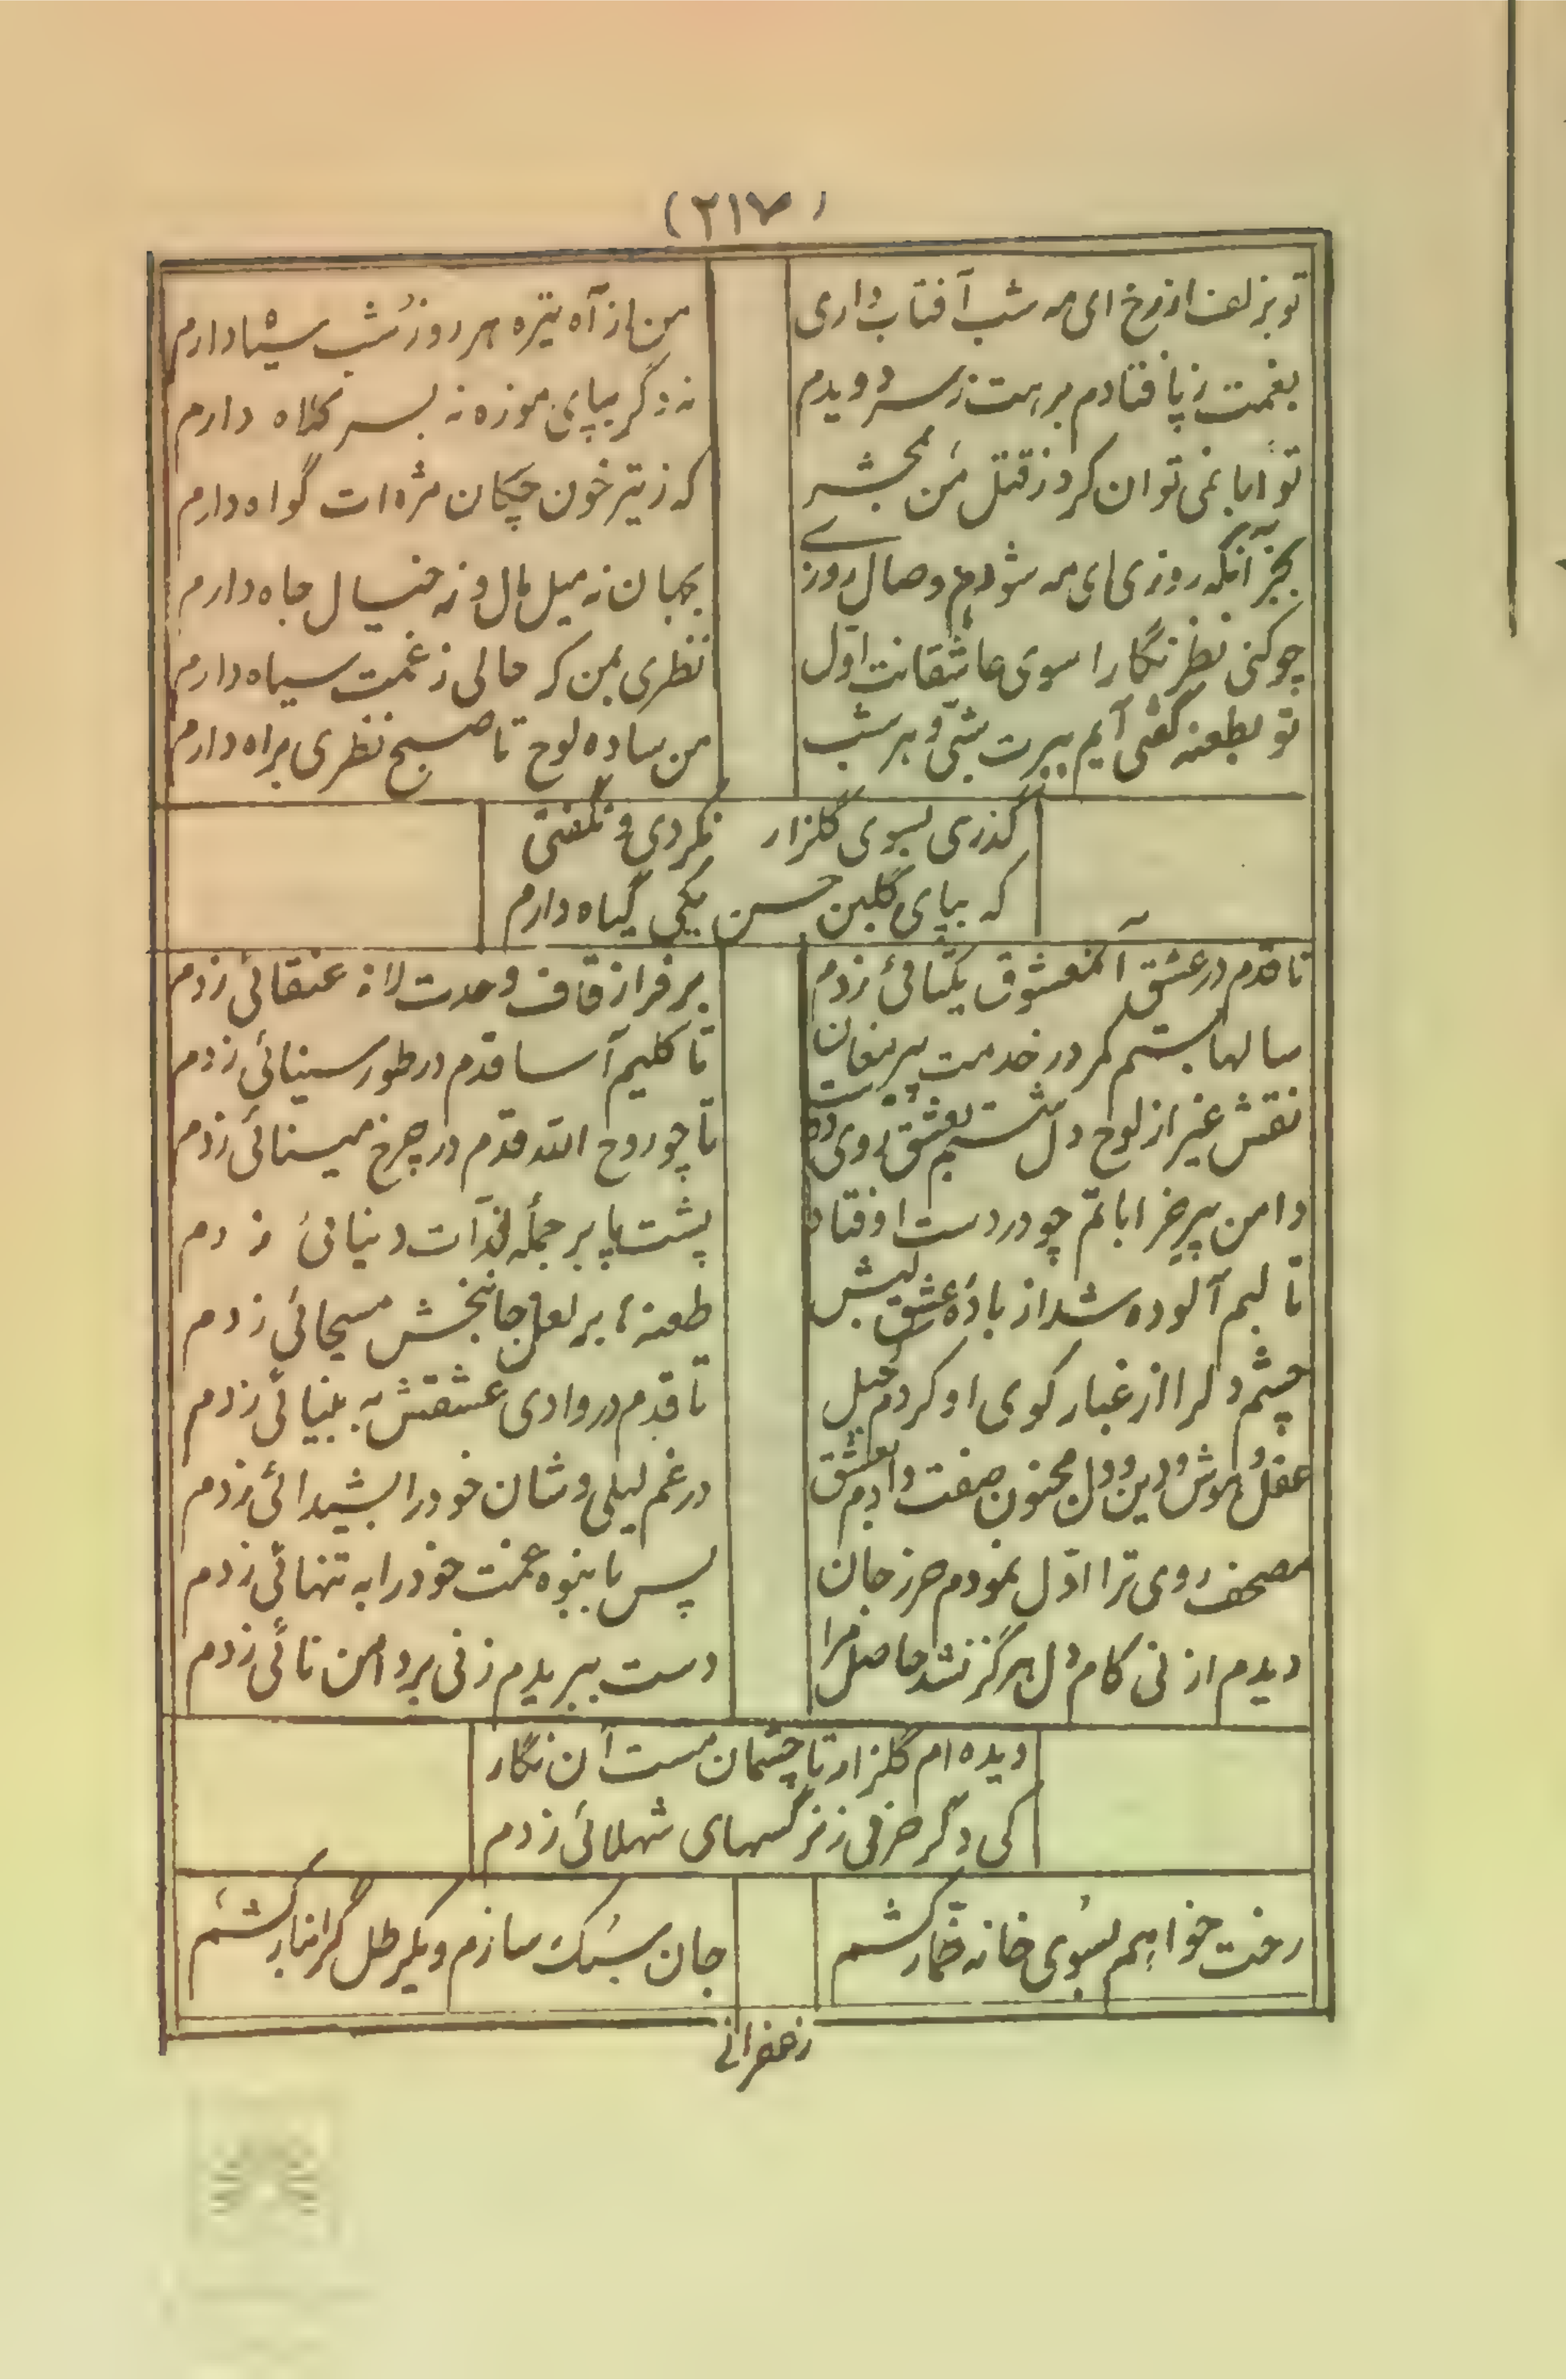 (۲۱۷)
تو بزلف از رخ ای مه شب آفتاب داری
من از آه تیره هر روز شب سیاه دارم
بغمت ز پا فتادم برهت ز سر دویدم
نه دگر بپای موزه نه بسر کلاه دارم
تو ابا نمی توان کرد ز قتل من بمحشر
که ز تیر خون چکان مژه ات گواه دارم
بجز آنکه روزی ای مه شودم وصال روزے
بجهان نه میل مال و نه خیال جاه دارم
چو کنی نظر نگارا سوی عاشقانت اول
نظری بمن که حالی ز غمت سیاه دارم
تو بطعنه گفتی آیم ببرت شبی و هر شب
من ساده لوح تا صبح نظری براه دارم
گذری بسوی گلزار نکردی و نگفتی
که بپای گلبن حسن یکی گیاه دارم
تا قدم در عشق آنمعشوق یکتائی زدم
بر فراز قاف وحدت لانه عنقائی زدم
سالها بستم کمر در خدمت پیر مغان
تا کلیم آسا قدم در طور سینائی زدم
نقش غیر از لوح دل شستم بعشق روی دوست
تا چو روح الله قدم در چرخ مینائی زدم
دامن پیر خراباتم چو در دست اوفتاد
پشت پا بر جمله لذّات دنیائی زدم
تا لبم آلوده شد از بادهٔ عشق لبش
طعنه ها بر لعل جانبخش مسیحائی زدم
چشم دلرا از غبار کوی او کردم کحیل
تا قدم در وادی عشقش به بینائی زدم
عقل و هوش و دین و دل مجنون صفت دادم بعشق
در غم لیلی وشان خود را بشیدائی زدم
مصحف روی ترا اوّل نمودم حرز جان
پس بانبوه غمت خود را به تنهائی زدم
دیدم از نی کام دل هرگز نشد حاصل مرا
دست ببریدم ز نی بر دامن نائی زدم
دیده ام گلزار تا چشمان مست آن نگار
کی دگر حرفی ز نرگسهای شهلائی زدم
رخت خواهم بسوی خانه خمّار کشم
جان سبک سازم و یکرطل گرانبار کشم
زعفرانے